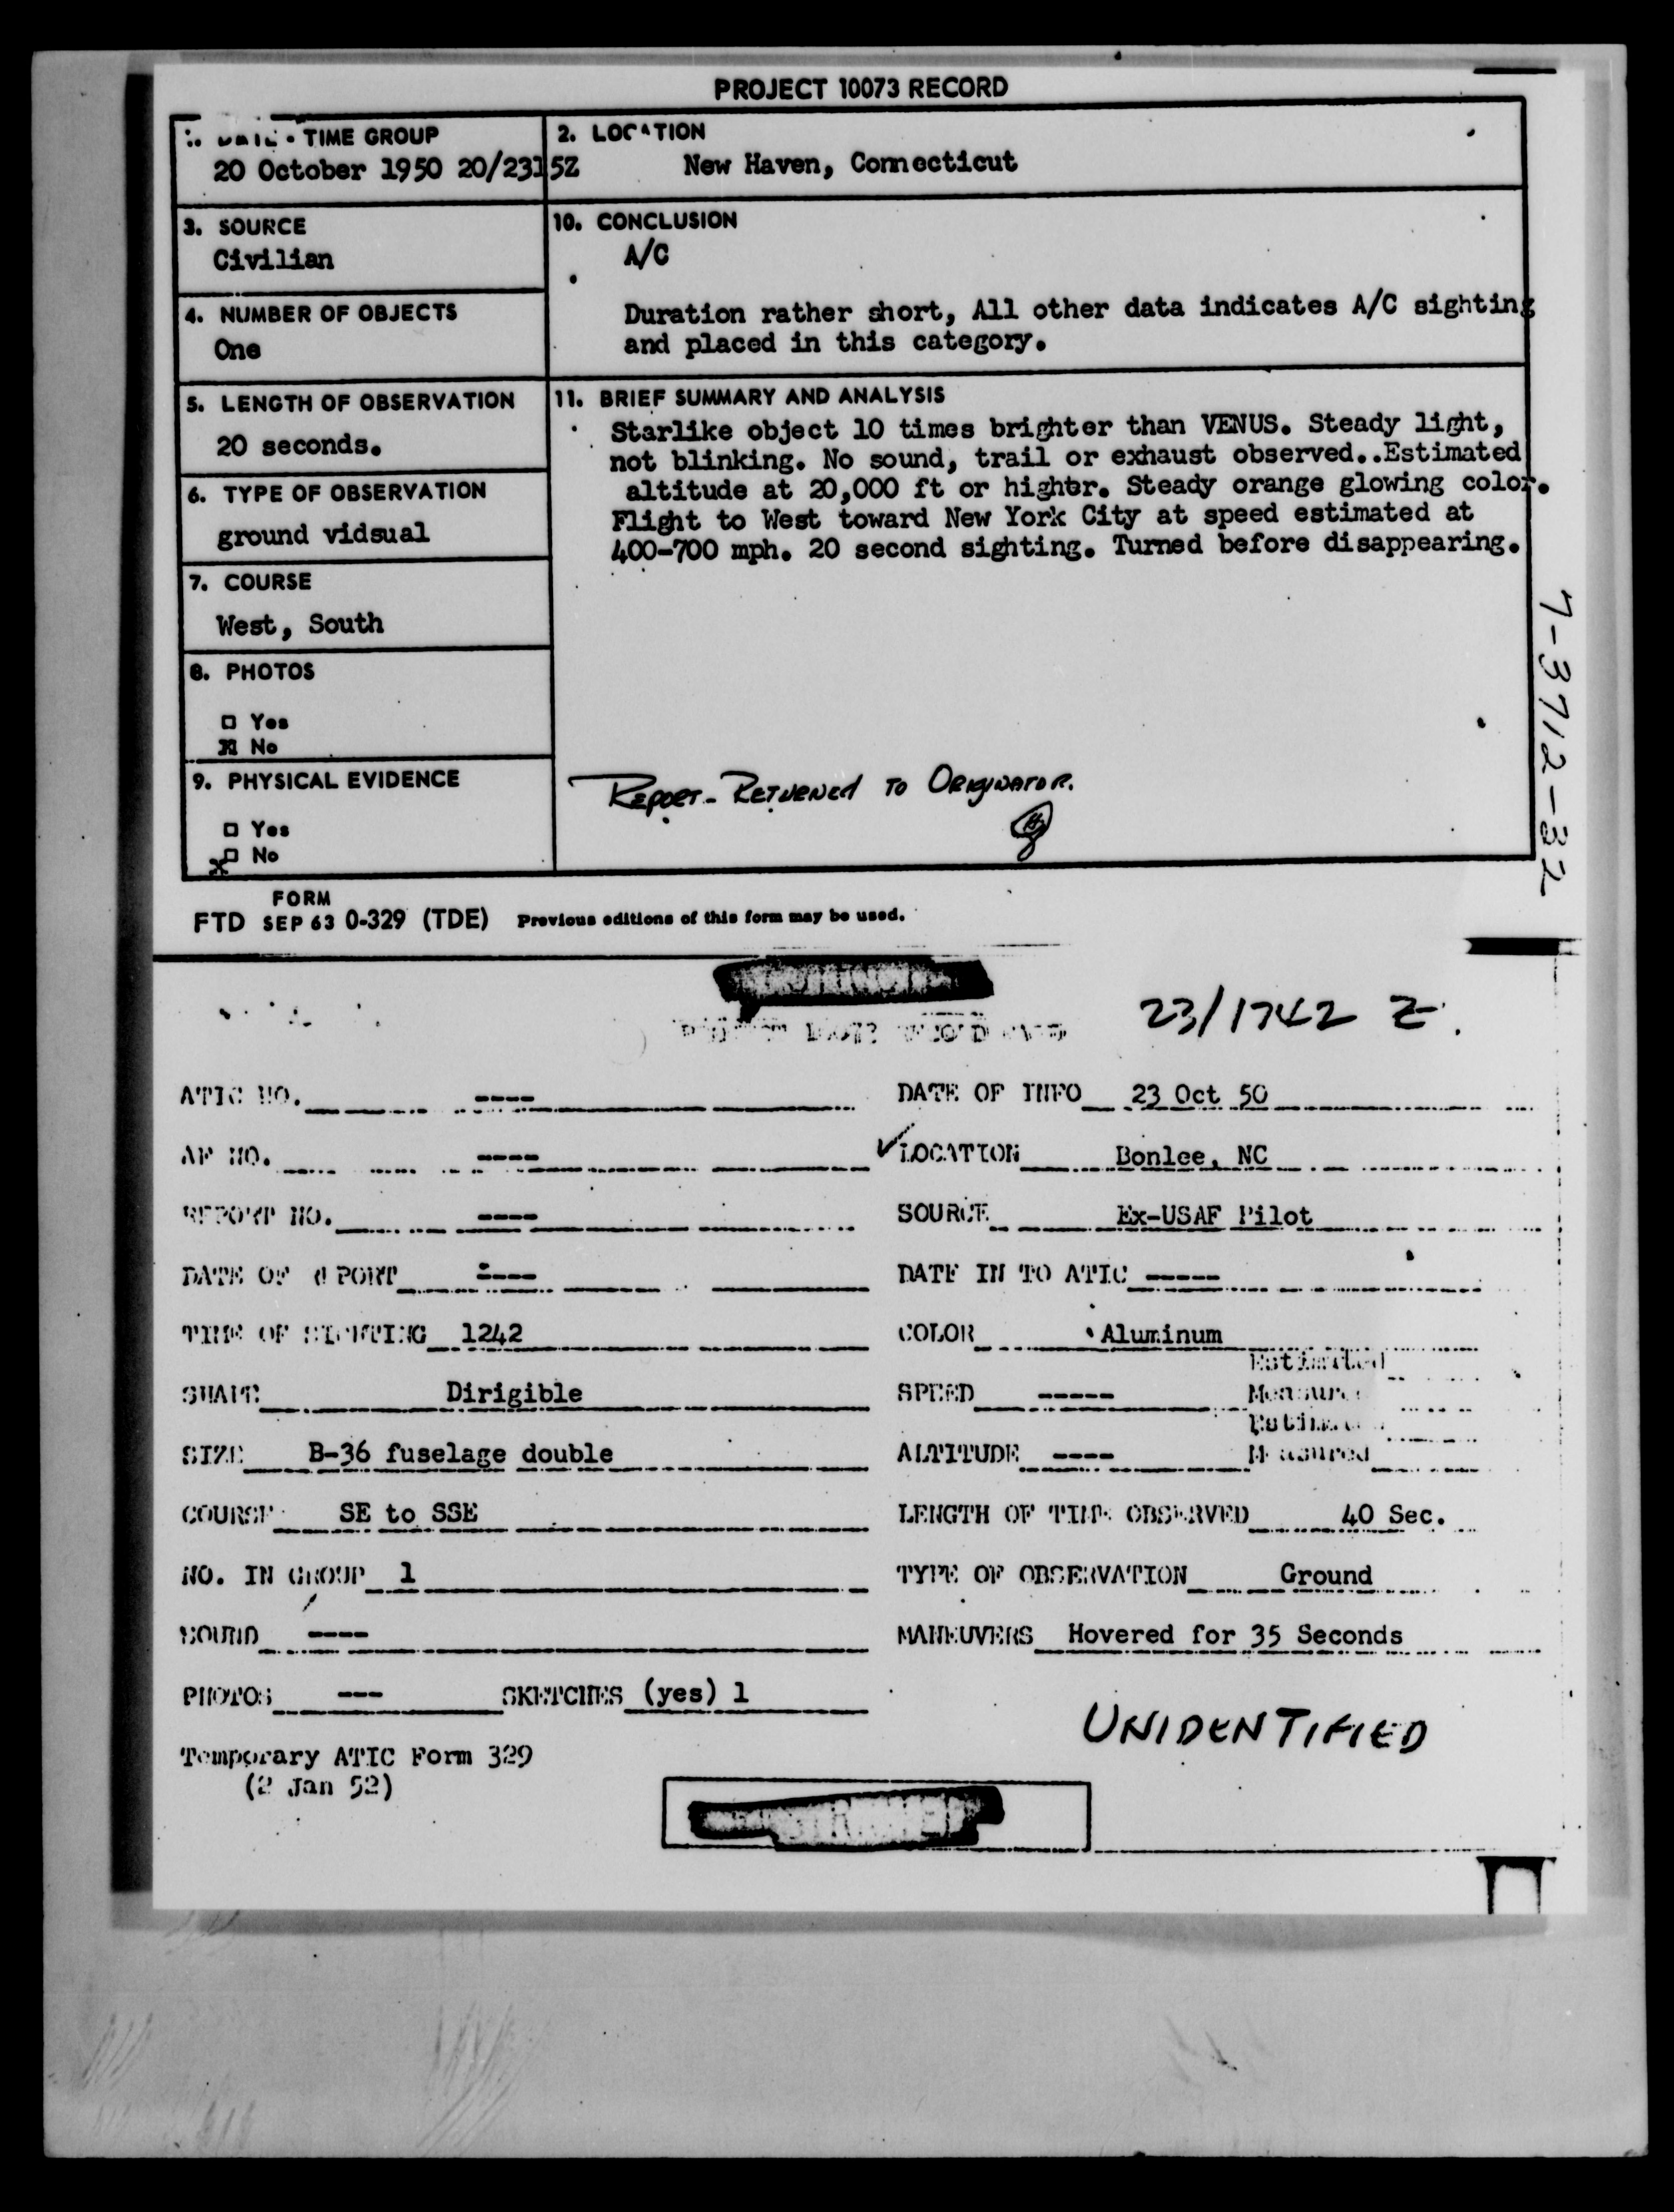 PROJECT 10073 RECORD
TIME GROUP
20 October 1950 20/2315Z
2. LOCATION
New Haven, Connecticut
3. SOURCE
Civilian
10. CONCLUSION
A/C
Duration rather short, All other data indicates A/C sighting
and placed in this category.
4. NUMBER OF OBJECTS
One
5. LENGTH OF OBSERVATION
20 seconds.
11. BRIEF SUMMARY AND ANALYSIS
Starlike object 10 times brighter than VENUS. Steady light,
not blinking. No sound, trail or exhaust observed..Estimated
altitude at 20,000 ft or higher. Steady orange glowing color.
Flight to West toward New York City at speed estimated at
400-700 mph. 20 second sighting. Turned before disappearing.
6. TYPE OF OBSERVATION
ground vidsual
7. COURSE
West, South
8. PHOTOS
Yes
No
9. PHYSICAL EVIDENCE
Yes
X No
REPORT- RETURNED TO ORIGINATOR.
7-3712-32
FORM
FTD SEP 63 0-329 (TDE) Previous editions of this form may be used.
23/1742 Z.
ATIC NO. ---- DATE OF INFO 23 Oct 50
AF NO. ---- LOCATION Bonlee, NC
REPORT NO. ---- SOURCE Ex-USAF Pilot
DATE OF REPORT ---- DATE IN TO ATIC -----
TIME OF SIGHTING 1242 COLOR Aluminum
Estimated
SHAPE Dirigible SPEED ----- Measured
Estimated
SIZE B-36 fuselage double ALTITUDE ---- Measured
COURSE SE to SSE LENGTH OF TIME OBSERVED 40 Sec.
NO. IN GROUP 1 TYPE OF OBSERVATION Ground
SOUND ---- MANEUVERS Hovered for 35 Seconds
PHOTOS --- SKETCHES (yes) 1
UNIDENTIFIED
Temporary ATIC Form 329
(2 Jan 52)